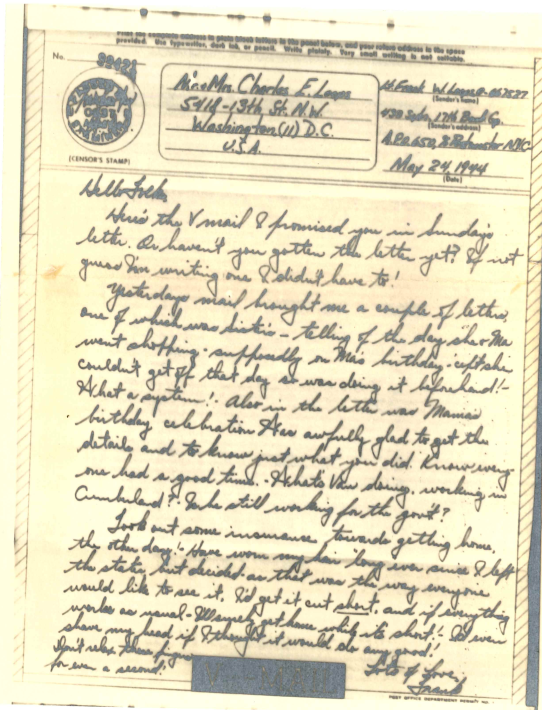 Print the complete address in plain block letters in the panel below, and your return address in the space
provided. Use typewriter, dark ink, or pencil. Write plainly. Very small writing is not suitable.
No.
(CENSOR'S STAMP)
Mr. & Mrs. Charles E.
5418-13th St. N.W.
Washington (11) D.C.
U.S.A.
Lt. Frank W.
(Sender's name)
17th
(Sender's address)
A.P.O. 650, % Postmaster NYC
May 24, 1944
(Date)
Hello Folks,
Here's the V mail I promised you in Sunday's
letter. Or haven't you gotten the letter yet? If not
guess I'm writing one I didn't have to!
Yesterday's mail brought me a couple of letters,
one of which was sis's - telling of the day she & Ma
went shopping - supposedly on Ma's birthday - 'cept she
couldn't get off that day so was doing it beforehand! -
What a system! - Also in the letter was Mama's
birthday celebration. Was awfully glad to get the
details and to know just what you did. Know every-
one had a good time. - What's Van doing, working in
Cumberland? - Is he still working for the gov't?
Took out some insurance towards getting home,
the other day! - Have worn my hair long ever since I left
the states but decided as that was the way everyone
would like to see it, I'd get it cut short, and if everything
works as usual - I'll surely get home while it's short! - I'd even
shave my head if I thought it would do any good!
Don't relax those fingers
for even a second!
Lots of Love,
Frank
V-MAIL
POST OFFICE DEPARTMENT PERMIT NO.